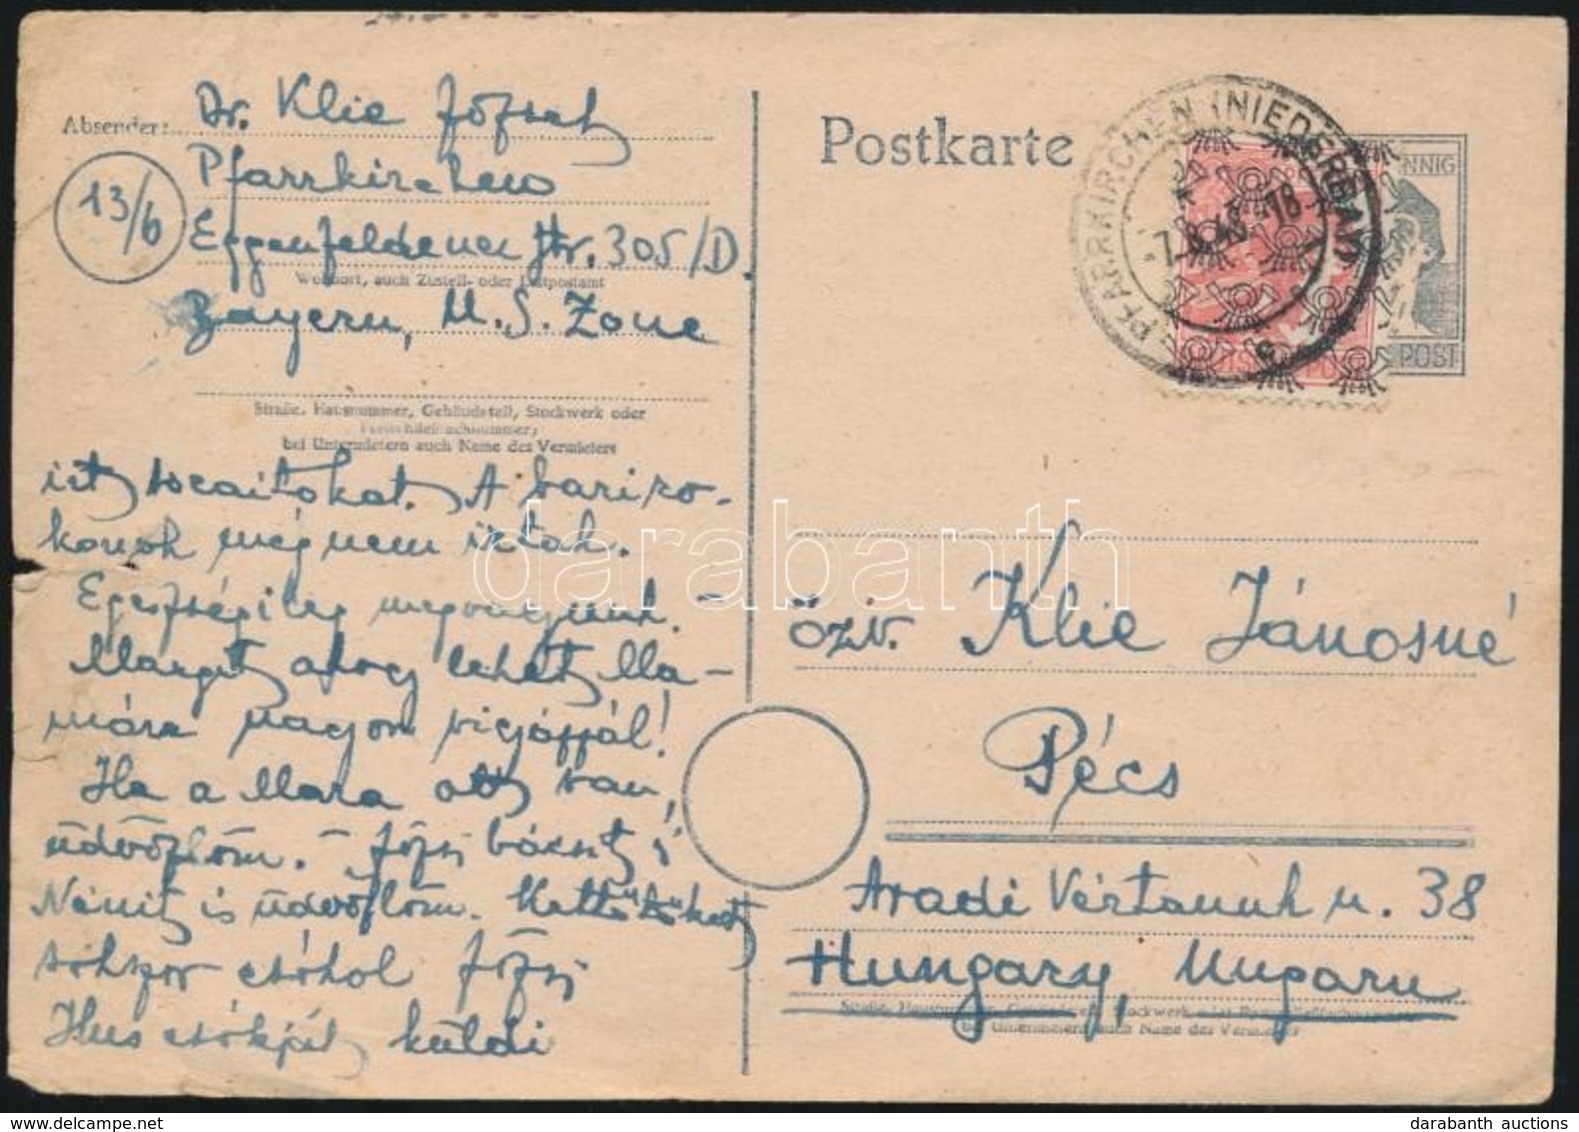 Absender:
Dr. Klie József
Pfarrkirchen
13/b
Eggenfeldener Str. 305/D.
Wohnort, auch Zustell- oder Leitpostamt
Bayern, U.S. Zone
Straße, Hausnummer, Gebäudeteil, Stockwerk oder
bei Untermietern auch Name des Vermieters
A bariro-
konok még nem írtak.
Egészségileg megvagyunk. –
Margit ahogy lehet Ma-
mára nagyon vigyázzál!
Ha a Mara ott van,
üdvözlöm. – Józsi bácsit,
Nénit is üdvözlöm. Kettőtöket
sokszor csókol Józsi
Hus csókját küldi
Postkarte
PFARRKIRCHEN (NIEDERBAY)
-7.
48-18
c
NNIG
POST
özv. Klie Jánosné
Pécs
Aradi Vértanuk u. 38
Hungary, Ungarn
bei Untermietern auch Name des Vermieters
darabanth
darabanth auctions
www.darabanth.com